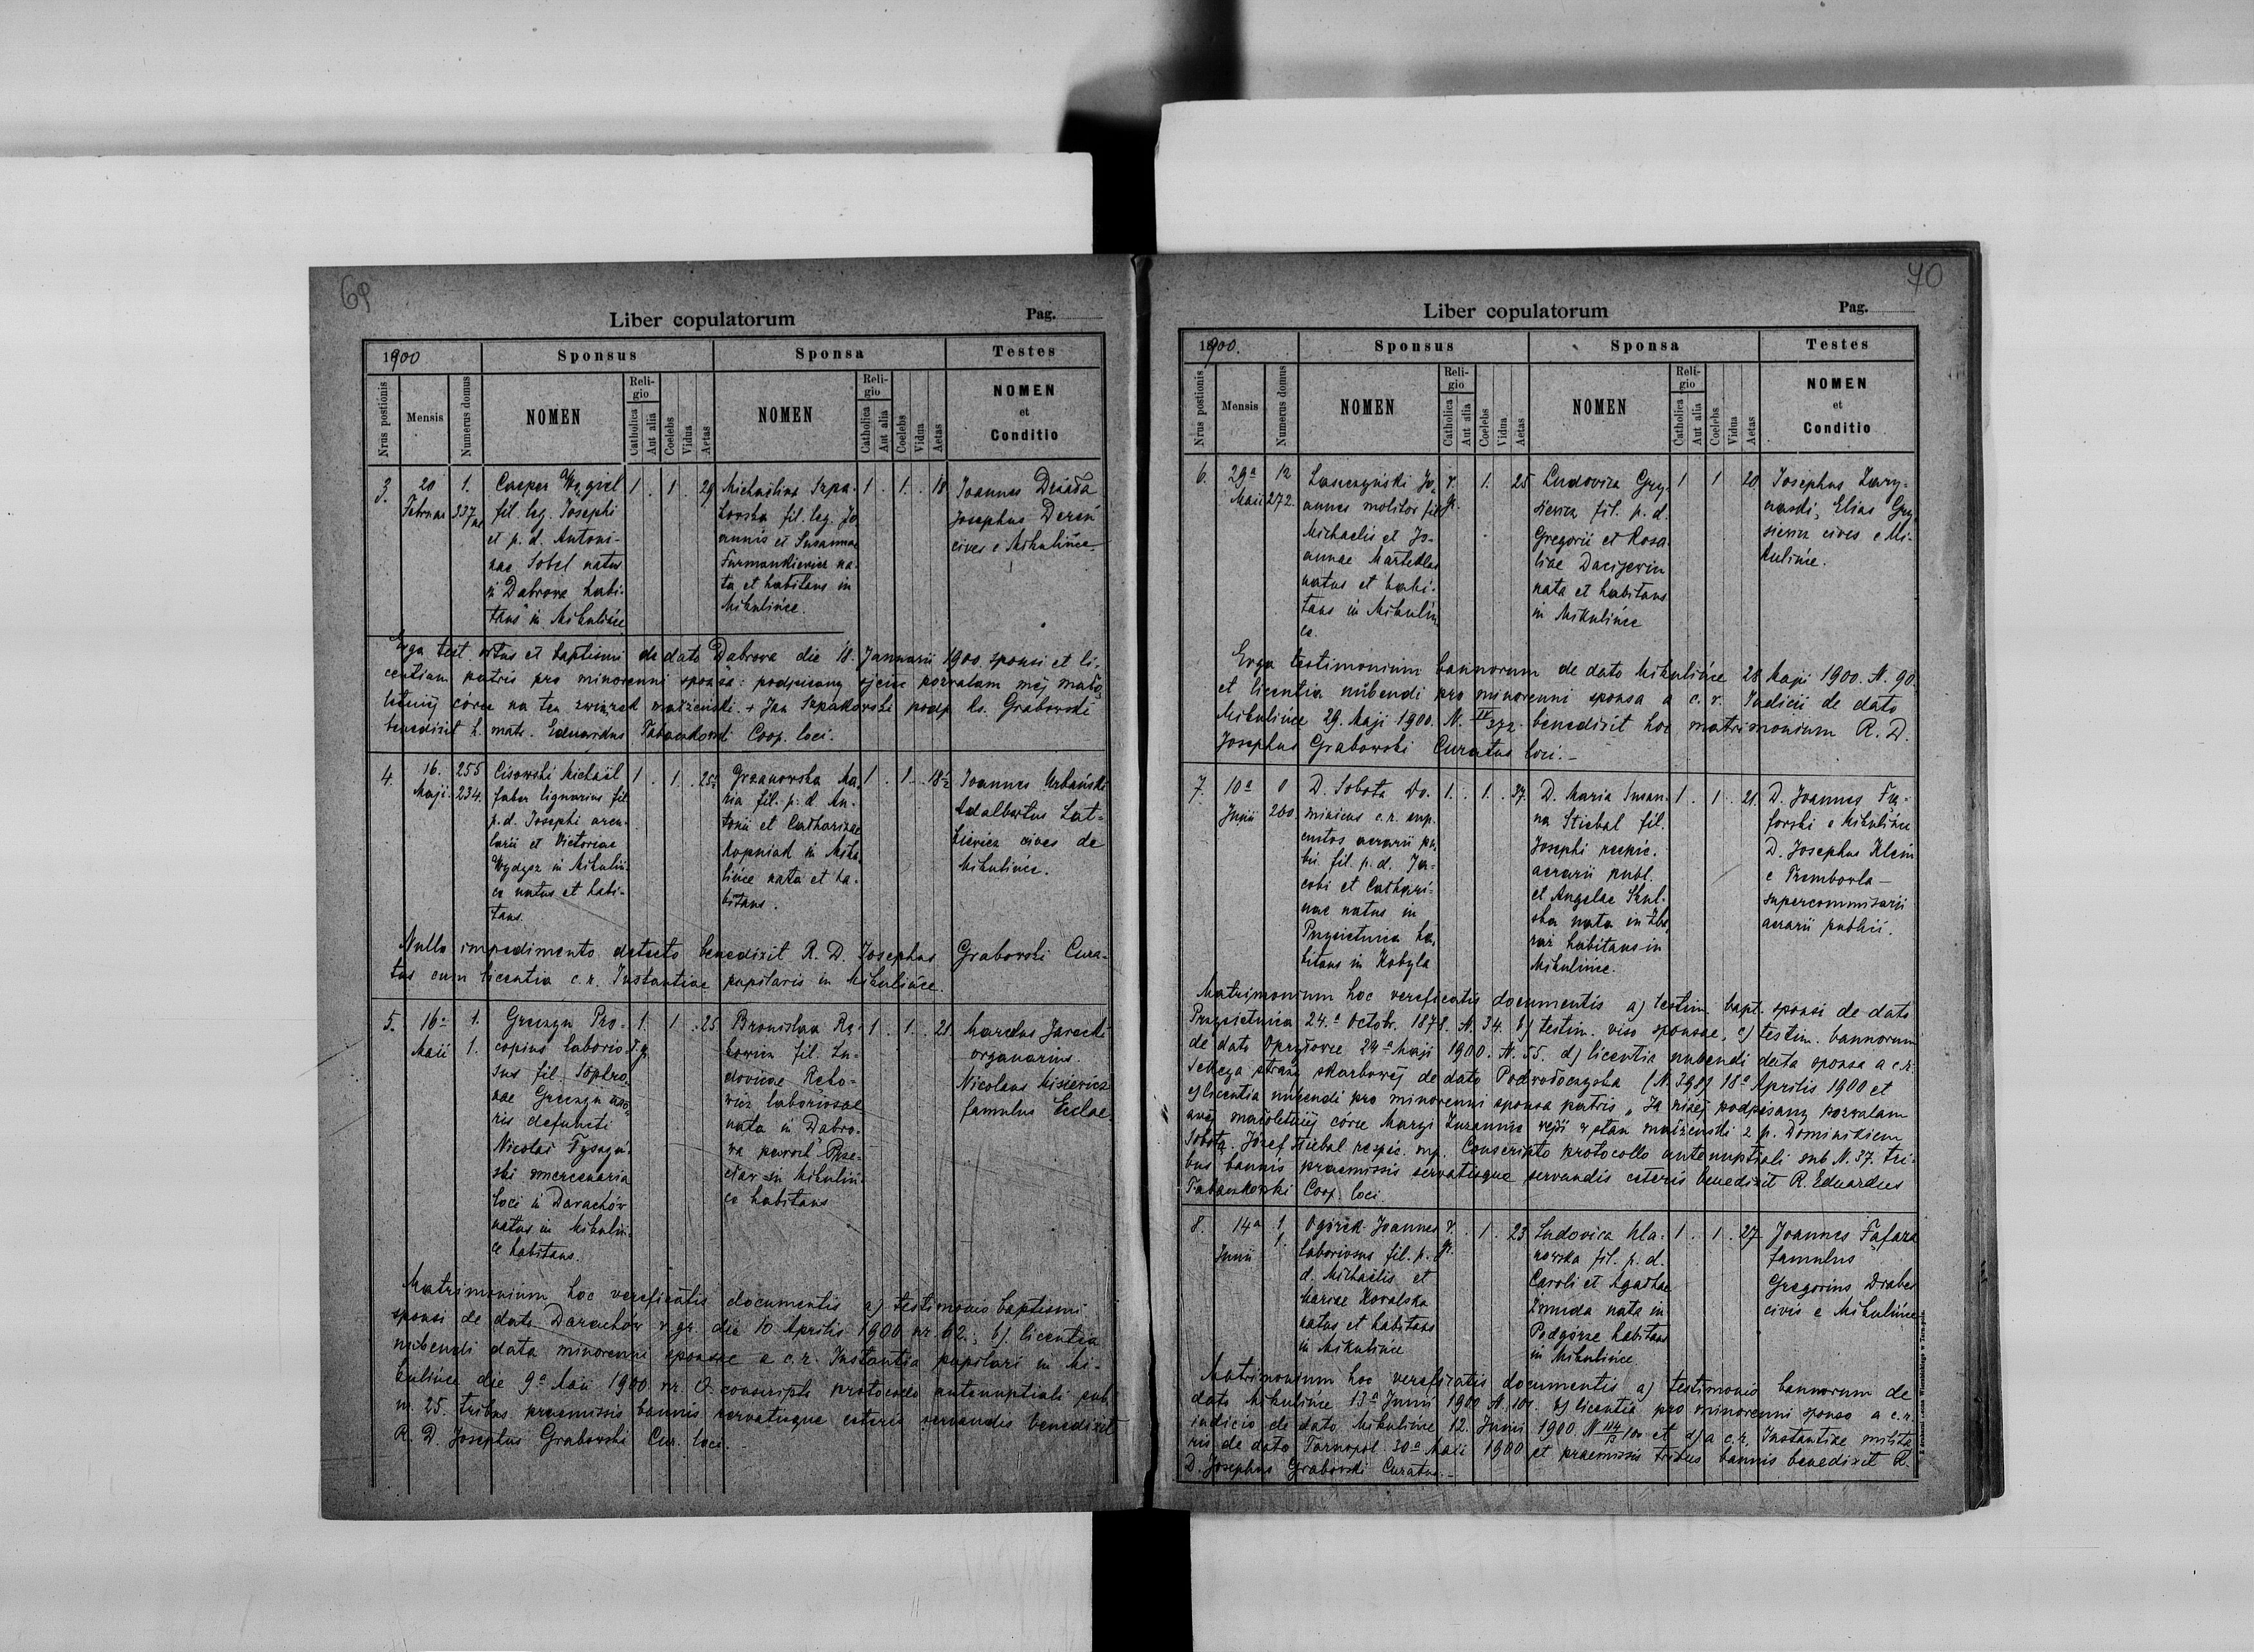 69
Liber copulatorum
Pag.
1900
Sponsus
Sponsa
Testes
Nrus postionis
Mensis
Numerus domus
NOMEN
Religio
Catholica
Aut alia
Coelebs
Vidua
Aetas
NOMEN
Religio
Catholica
Aut alia
Coelebs
Vidua
Aetas
NOMEN
et
Conditio
3.
20
Februar
1.
337
Casper Węgiel
fil. leg. Josephi
et p. d. Antoni-
nae Sobel natus
in Dabrova habi-
tans in Mikulińce
1 . 1 . 29
Michalina Szpa-
kovska fil. leg. Jo
annis et Susannae
Furmankievicz na-
ta et habitans in
Mikulińce.
1 . 1 . 18
Joannes Dziada
Josephus Dereń
cives e Mikulińce
Erga test. ortus et baptismi de dato Dabrova die 18. Januarii 1900. sponsi et li-
centiam patris pro minorenni sponsa: podpisany ojciec pozwalam mej mało-
letniej córce na ten związek małżeński. + Jan Szpakowski podp. ks. Grabowski
benedixit h. matr. Eduardus Tabaczkowski Coop. loci.
4
16.
Maji.
255
234.
Cisowski Michaël
faber lignarius fil
p. d. Josephi arcu-
larii et Victoriae
Wydysz in Mikuliń-
ce natus et habi-
tans.
1 . 1 . 25
Grzanowska Ma
ria fil. p. d. An-
tonii et Catharinae
Kopniak in Miku
lińce nata et ha-
bitans.
1 . 1 . 18½
Joannes Urbański
Adalbertus Lat-
kievicz cives de
Mikulińce.
Nullo impedimento detecto benedixit R. D. Josephus Grabowski Cura-
tus cum licentia c. r. Instantiae pupilaris in Mikulińce.
5.
16a
Maii
1.
1.
Greczyn Pro-
copius laborio-
sus fil. Sophro-
nae Greczyn uxo-
ris defuncti
Nicolai Tyszyń-
ski mercenaria
loci in Darachów
natus in Mikuliń-
ce habitans.
1. r. g. 1 . 25
Bronislava Re-
towicz fil. Lu-
dovicae Reto-
wicz laboriosae
nata in Dabro-
wa paroch.
in Mikuliń-
ce habitans
1 . 1 . 21
Marcelus Jarecki
organarius.
Nicolaus Misiewicz
famulus Eccl­ae
Matrimonium hoc verificatis documentis a) testimonio baptismi
sponsi de dato Darachów r. gr. die 10 Aprilis 1900 nr. 62., b). licentia
nubendi data minorenni sponsae a c. r. Instantia pupilari in Mi-
kulińce die 9a Maii 1900 nr. 0. conscripto protocollo antenuptiali sub
nr. 25. tribus praemissis bannis servatisque ceteris servandis benedixit
R. D. Josephus Grabowski Cur. loci.-
70
Liber copulatorum
Pag.
1900.
Sponsus
Sponsa
Testes
Nrus postionis
Mensis
Numerus domus
NOMEN
Religio
Catholica
Aut alia
Coelebs
Vidua
Aetas
NOMEN
Religio
Catholica
Aut alia
Coelebs
Vidua
Aetas
NOMEN
et
Conditio
6.
29a
Maii
12
272.
Lanczyński Jo
annes molitor fil
Michaelis et Jo-
annae
natus et habi-
tans in Mikuliń
ce.
r. gr. 1. 25
Ludovica Gry-
siewicz fil. p. d.
Gregorii et Rosa-
liae
nata et habitans
in Mikulińce
1 1 20
Josephus Zary-
, Elias Gry
siewicz cives e Mi-
kulińce.
Erga testimonium bannorum de dato Mikulińce 28 Maji 1900. N. 90.
et licentia nubendi pro minorenni sponsa a c. r. Judicii de dato
Mikulińce 29. Maji 1900. N. IV 37/2. benedixit hoc matrimonium R. D.
Josephus Grabowski Curatus loci.-
7.
10a
Junii
0
200
D. Sobota Do-
minicus c. r. sup.
custos aerarii pu
bli. fil. p. d. Ja-
cobi et Cathari-
nae natus in
Przysietnica ha-
bitans in Kobyla
1. 1. 37
D. Maria Susan-
na Stiebal fil.
Josephi respic.
aerarii publ.
et Angelae Skul-
ska nata in Zba
raż habitans in
Mikulińce.
1. 1 . 21
D. Joannes
e Mikulińce
D. Josephus Klein
e Trembovla -
supercommisarii
aerarii publici.
Matrimonium hoc verificatis documentis a) testim. bapt. sponsi de dato
Przysietnica 24.a Octobr. 1878. N. 34. b) testim. viso sponsae, c) testim. bannorum
de dato Opryłowce 29a Maji 1900. N. 55. d) licentia nubendi data sponsa a c. r.
Sekcya straży skarbowej de dato Podwołoczyska (N. 398) 18a Aprilis 1900 et
e) licentia nubendi pro minorenni sponsa patris „Ja niżej podpisany pozwalam
swej małoletniej córce Maryi Zuzannie wejść w stan małżeński z p. Dominikiem
Sobotą. Józef Stiebal respic. mp. Conscripto protocollo antenuptiali sub N. 37. tri-
bus bannis praemissis servatisque servandis ceteris benedixit R. Eduardus
Tabaczkowski Coop. loci.
8.
14a
Junii
1
1.
Ogórek Joannes
laboriosus fil. p.
d. Michaëlis et
Mariae Kovalska
natus et habitans
in Mikulińce
r. gr. . 1 . 23
Ludovica Ula-
nowska fil. p. d.
Caroli et Agathae
Żmuda nata in
Podgórze habitans
in Mikulińce
1 . 1 . 27
Joannes Fafara
famulus
Gregorius Drabes
civis e Mikulińce
Matrimonium hoc verificatis documentis a) testimonio bannorum de
dato Mikulińce 13a Junii 1900 N. 101. b) licentia pro minorenni sponso a c. r.
iudicio de dato Mikulińce 12. Junii 1900 N et d) a c. r. Instantiae milita
ris de dato Tarnopol 30a Maii 1900 et praemissis tribus bannis benedixit R.
D. Josephus Grabowski Curatus.-